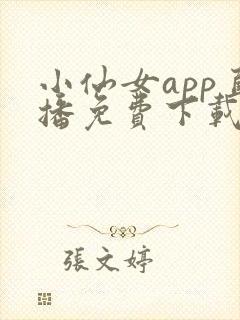 小仙女app
播免費下載
張文婷